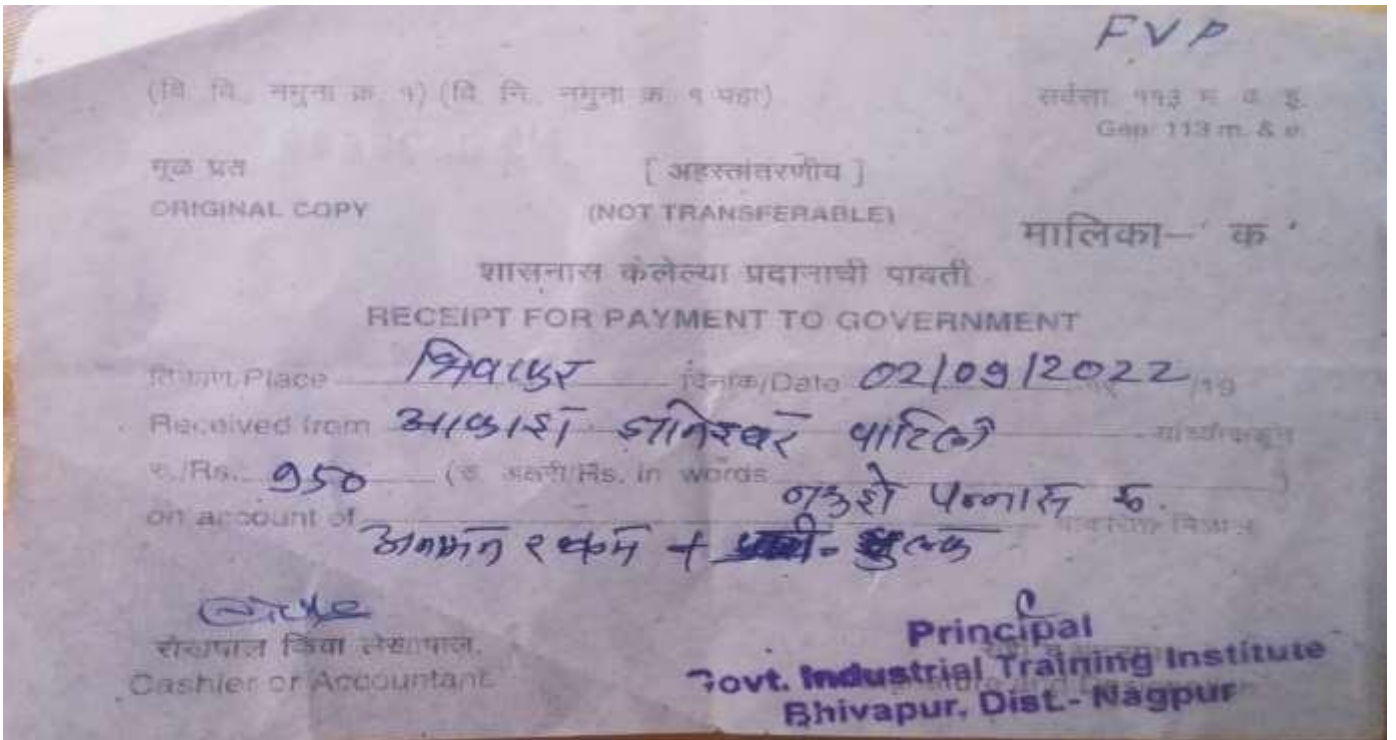 FVP
(वि. वि. नमुना क्र. १) (वि. नि. नमुना क्र. १ पहा)
सर्वसा ११३ म. व इ.
Gen. 113 m. & e.
मूळ प्रत
[ अहस्तांतरणीय ]
ORIGINAL COPY
(NOT TRANSFERABLE)
मालिका—' क '
शासनास केलेल्या प्रदानाची पावती
RECEIPT FOR PAYMENT TO GOVERNMENT
ठिकाण/Place भिवापुर दिनांक/Date 02/09/2022 /19
Received from आकाश ज्ञानेश्वर पाटिल यांच्याकडून
रु./Rs. 950 (रु. अक्षरी/Rs. in words नऊशे पन्नास रु. )
on account of अनामत रक्कम + शुल्क
रोखपाल किंवा लेखापाल.
Cashier or Accountant.
Principal
Govt. Industrial Training Institute
Bhivapur, Dist.- Nagpur